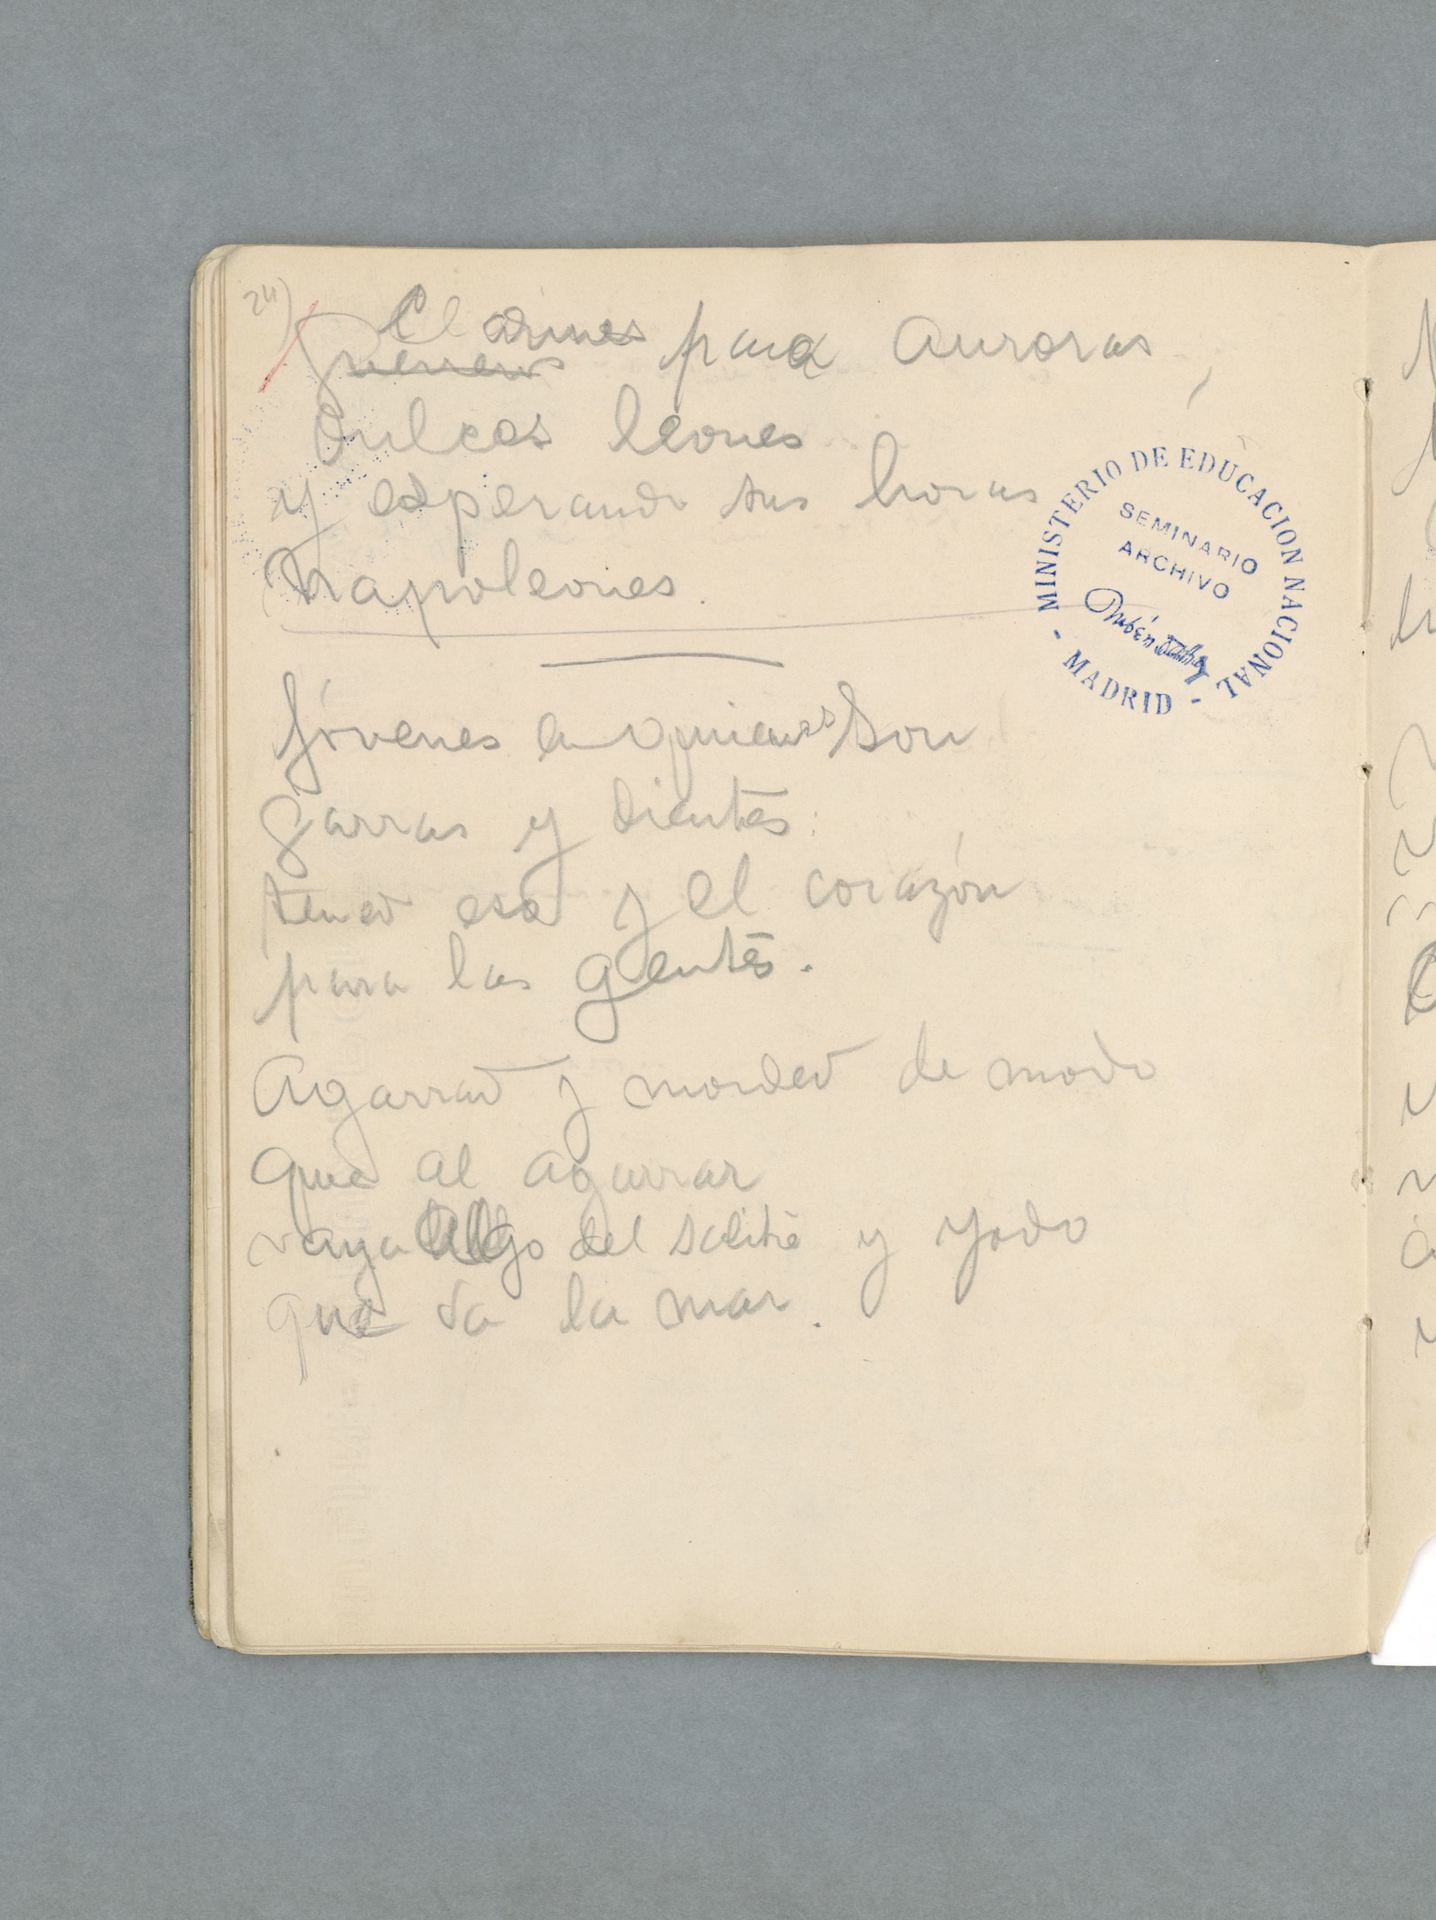 24)
Clarines para auroras,
dulces leones
y esperando sus horas
Napoleones.
Jóvenes en quienes son
garras y dientes:
tened eso y el corazón
para las gentes.
Agarrad y morded de modo
que al agarrar
vaya algo del salitre y yodo
que da la mar.
MINISTERIO DE EDUCACION NACIONAL
- MADRID -
SEMINARIO
ARCHIVO
Rubén Darío